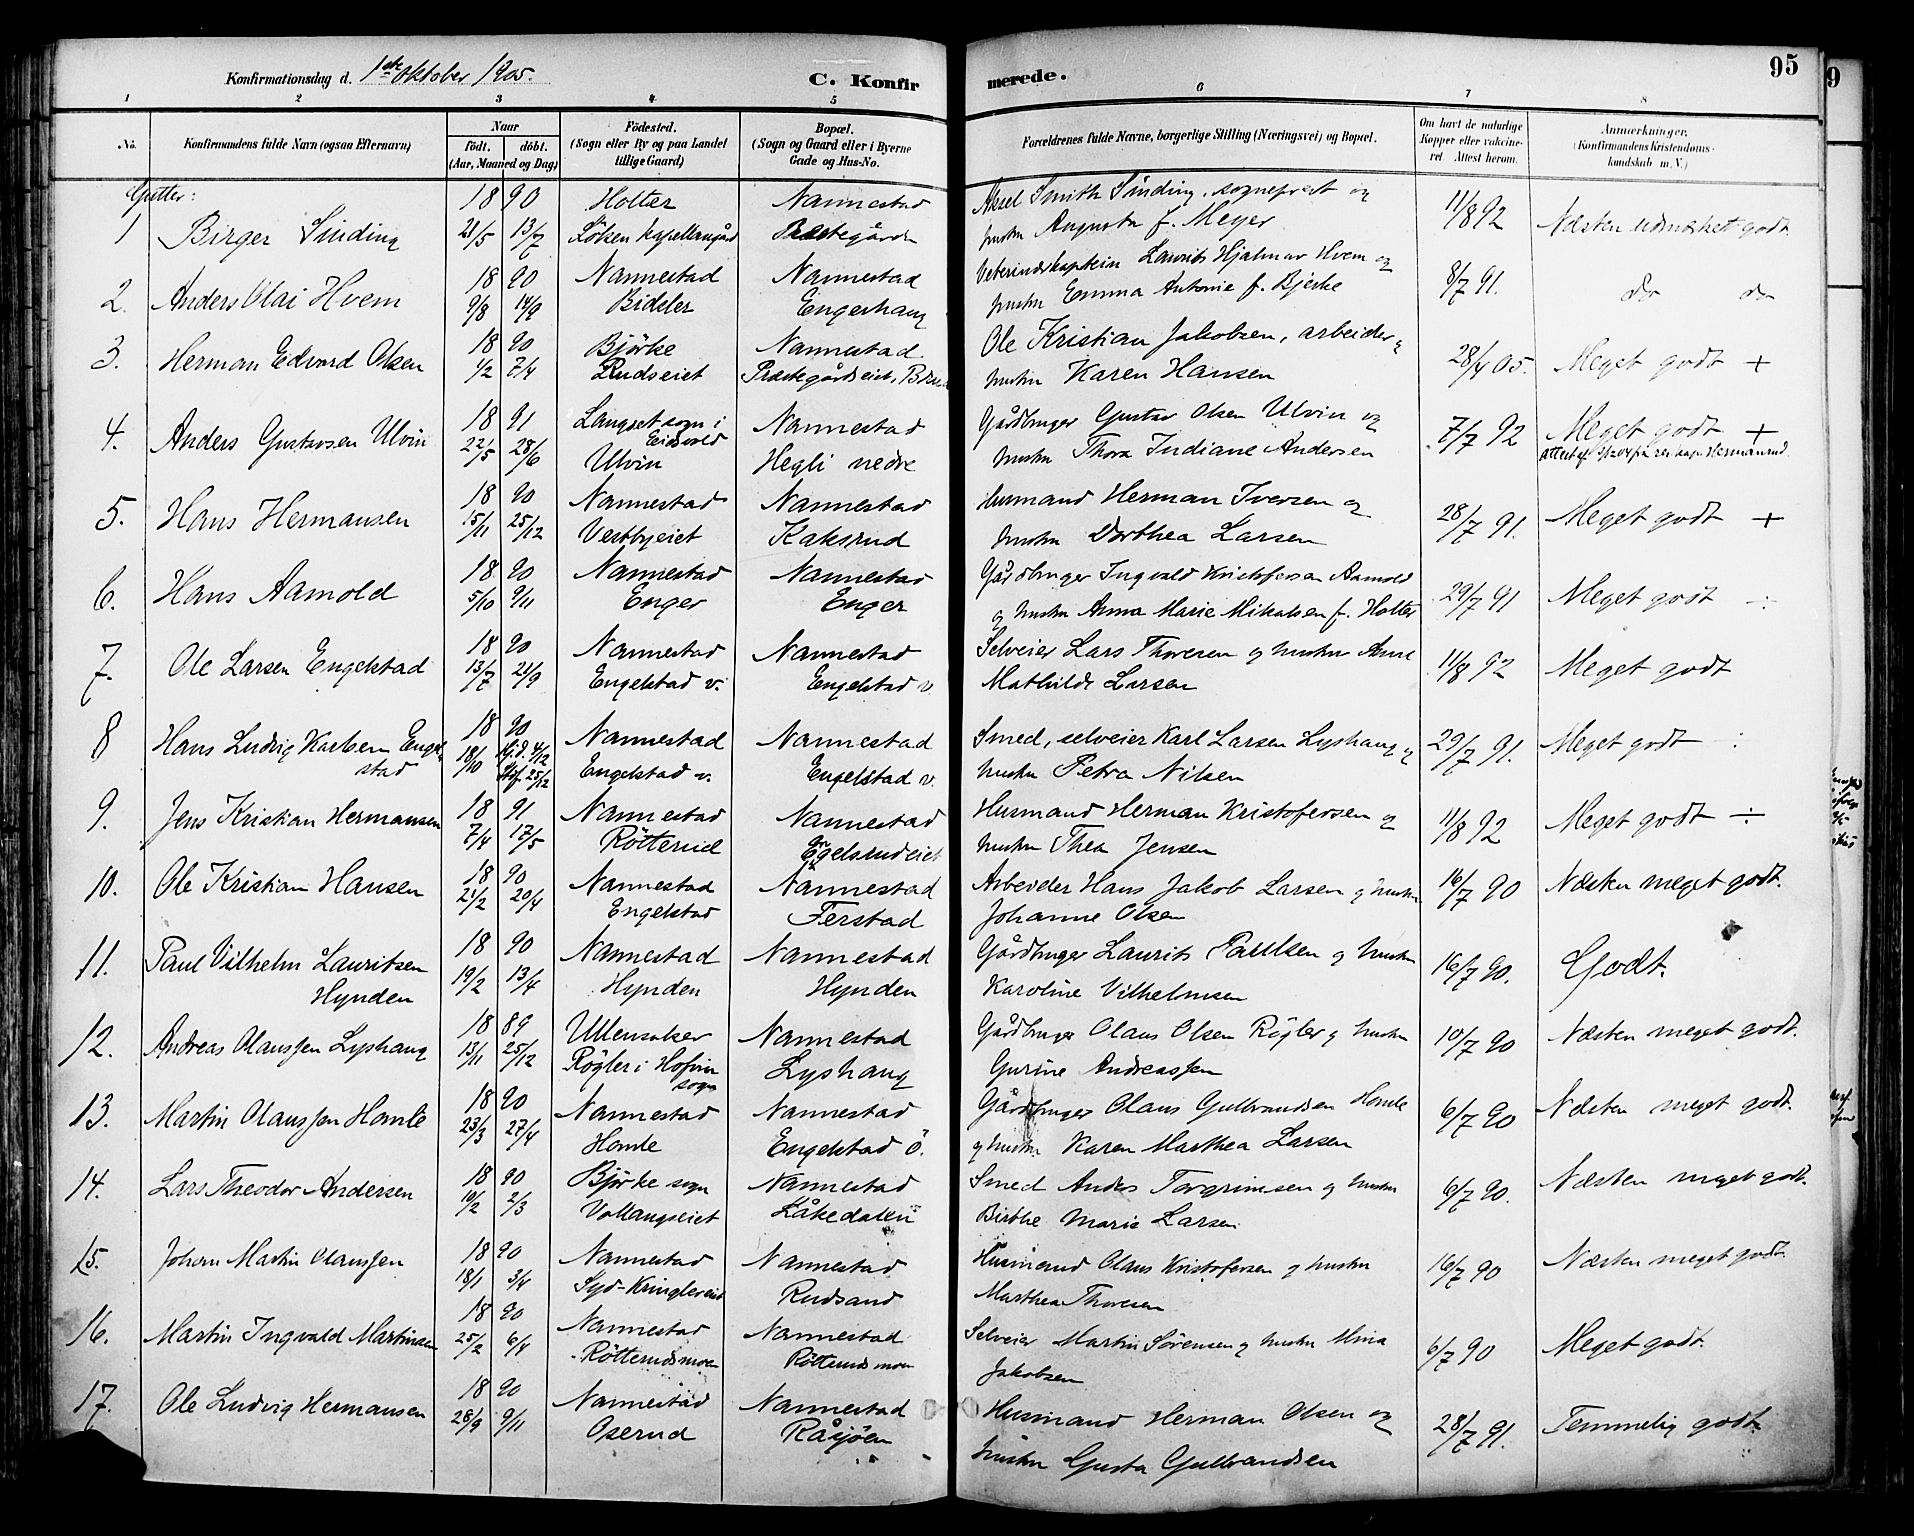 Konfirmationsdag d. 1ste oktober 1905.
C. Konfir
merede.
95
1 2 3 4 5 6 7 8
No.
Konfirmandens fulde Navn (ogsaa Efternavn)
Naar
födt. döbt.
(Aar, Maaned og Dag)
Födested.
(Sogn eller By og paa Landet
tillige Gaard)
Bopæl.
(Sogn og Gaard eller i Byerne
Gade og Hus-No.
Forældrenes fulde Navne, borgerlige Stilling (Næringsvei) og Bopæl.
Om havt de naturlige
Kopper eller vakcine-
ret. Attest herom.
Anmærkninger.
(Konfirmandens Kristendoms-
kundskab m. V.)
Gutter:
1 Birger Sinding 18 90 21/5 13/7 Holter Nannestad
Løken kapellangård Præstegården
Aksel Smith Sinding, sogneprest og
hustru Augusta f. Meyer 11/8 92 Næsten udmærket godt
2. Anders Olai Hvem 18 90 9/8 14/9 Nannestad Bideler Nannestad Engerhaug
Veterinærkaptein Laurits Hjalmar Hvem og
hustru Emma Antonie f. Bjerke 8/7 91. do do
3. Herman Edvard Olsen 18 90 1/2 7/4 Björke Rudseiet Nannestad Præstegårdseiet,
Ole Kristian Jakobsen, arbeider og
hustru Karen Hansen 28/4 05. Meget godt +
4. Anders Gustavsen Ulvin 18 91 22/5 28/6 Langset sogn i Eidsvold Ulvin Nannestad Hegli nedre
Gårdbruger Gustav Olsen Ulvin og
hustru Thora Indiane Andersen 7/7 92 Meget godt +
5. Hans Hermansen 18 90 15/11 25/12 Nannestad Vestbyeiet Nannestad Kaksrud
Husmand Herman Iversen og
hustru Dorthea Larsen 28/7 91. Meget godt +
6. Hans Aamold 18 90 5/10 9/11 Nannestad Enger Nannestad Enger
Gårdbruger Ingvald Kristofersen Aamold
og hustru Anna Marie Mikalsen f. Holter 29/7 91 Meget godt ÷
7. Ole Larsen Engelstad 18 90 13/7 21/9 Nannestad Engelstad v. Nannestad Engelstad v
Selveier Lars Thoresen og hustru Anne
Mathilde Larsen 11/8 92 Meget godt
8 Hans Ludvig Karlsen Engelstad 18 90 18/10 Hjd. 4/12 Stf. 25/12 Nannestad Engelstad v. Nannestad Engelstad v.
Smed, selveier Karl Larsen Lyshaug og
hustru Petra Nilsen 29/7 91. Meget godt ÷
9. Jens Kristian Hermansen 18 91 7/4 17/5 Nannestad Rötterud Nannestad Egelsrudeiet
Husmand Herman Kristofersen og
hustru Thea Jensen 11/8 92 Meget godt ÷
10. Ole Kristian Hansen 18 90 21/2 20/4 Nannestad Engelstad Nannestad Ferstad
Arbeider Hans Jakob Larsen og hustru
Johanne Olsen 16/7 90 Næsten meget godt.
11. Paul Vilhelm Lauritsen Hynden 18 90 19/2 13/4 Nannestad Hynden Nannestad Hynden
Gårdbruger Laurits Paulsen og hustru
Karoline Vilhelmsen 16/7 90. Godt.
12. Andreas Olaussen Lyshaug 18 89 13/11 25/12 Ullensaker Røgler i Hofvin sogn Nannestad Lyshaug
Gårdbruger Olaus Olsen Røgler og hustru
Gurine Andreassen 10/7 90 Næsten meget godt.
13. Martin Olaussen Homle 18 90 23/3 27/4 Nannestad Homle Nannestad Engelstad ö.
Gårdbruger Olaus Gulbrandsen Homle
og hustru Karen Marthea Larsen 6/7 90 Næsten meget godt.
14. Lars Theodor Andersen 18 90 10/2 2/3 Björke sogn Vollaugseiet Nannestad Låkedalen
Smed Anders Torgrimsen og hustru
Birthe Marie Larsen. 6/7 90. Næsten meget godt.
15. Johan Martin Olaussen 18 90 18/1 3/4 Nannestad Syd-Kringlereiet Nannestad Rudsand
Husmand Olaus Kristofersen og hustru
Marthea Thoresen 16/7 90 Næsten meget godt.
16. Martin Ingvald Martinsen 18 90 25/2 6/4 Nannestad Rötterudsmoen Nannestad Rötterudsmoen
Selveier Martin Sörensen og hustru Mina
Jakobsen 6/7 90 Meget godt.
17. Ole Ludvig Hermansen 18 90 28/9 9/11 Nannestad Oserud Nannestad Råsjöen
Husmand Herman Olsen og
hustru Gusta Gulbrandsen 28/7 91. Temmelig godt.